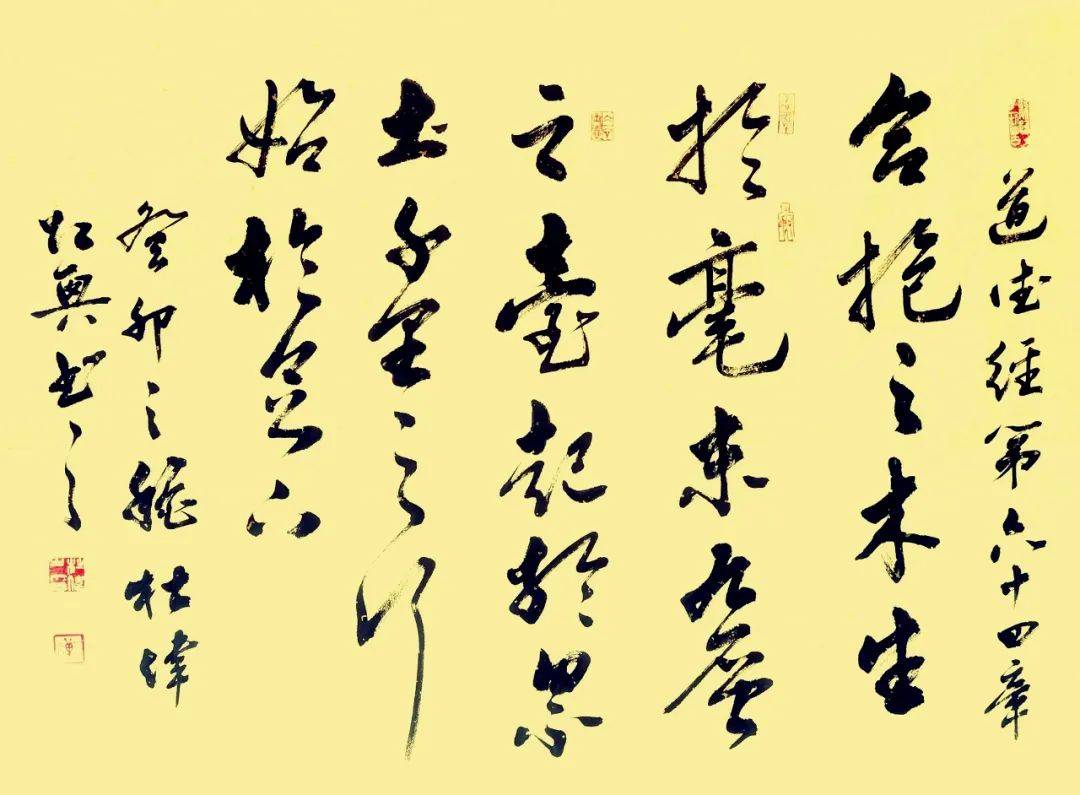 道德經第六十四章
合抱之木生
於毫末九層
之臺起於累
土千里之行
始於足下
癸卯之穐杜緯
興書之